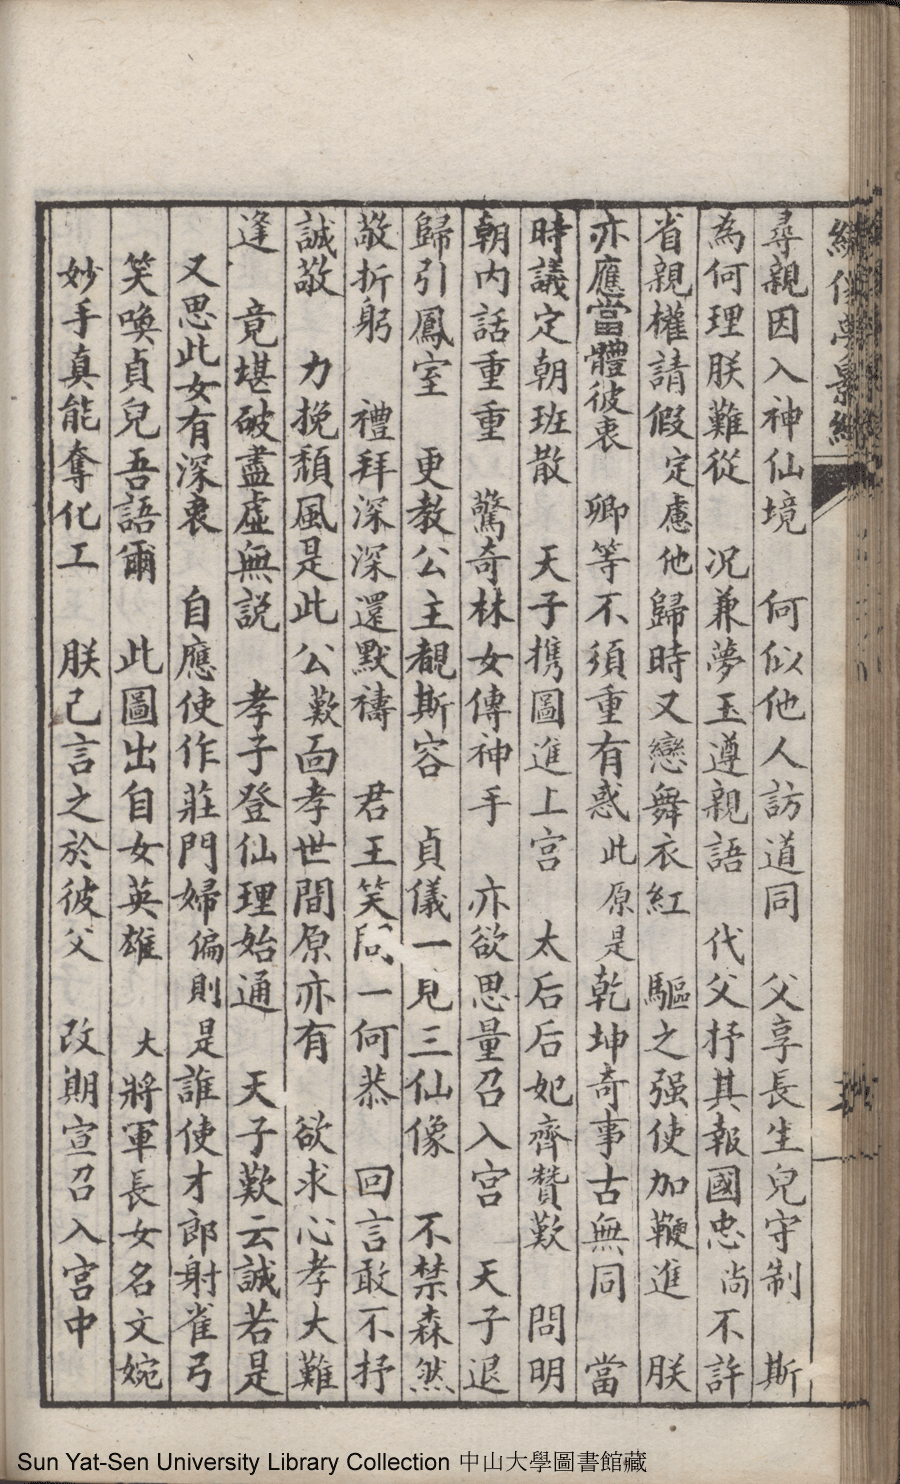 尋親因入神仙境　何似他人訪道同　父享長生兒守制　斯
為何理朕難從　况兼夢玉遵親語　代父抒其報國忠尚不許
省親權請假定慮他歸時又戀舞衣紅　驅之强使加鞭進　朕
亦應當體彼衷　卿等不須重有惑此原是乾坤奇事古無同　當
時議定朝班散　天子携圖進上宮　太后后妃齊贊歎　問明
朝內話重重　驚奇林女傳神手　亦欲思量召入宮　天子退
歸引鳳室　更教公主覩斯容　貞儀一見三仙像　不禁森然
敬折躬　禮拜深深還默禱　君王笑問一何恭　回言敢不抒
誠敬　力挽頹風是此公歎面孝世間原亦有　欲求心孝大難
逢　竟堪破盡虛無説　孝子登仙理始通　天子歎云誠若是
又思此女有深衷　自應使作莊門婦偏則是誰使才郎射雀弓
笑喚貞兒吾語爾　此圖出自女英雄　大將軍長女名文婉
妙手真能奪化工　朕已言之於彼父　改期宣召入宮中
Sun Yat-Sen University Library Collection 中山大學圖書館藏